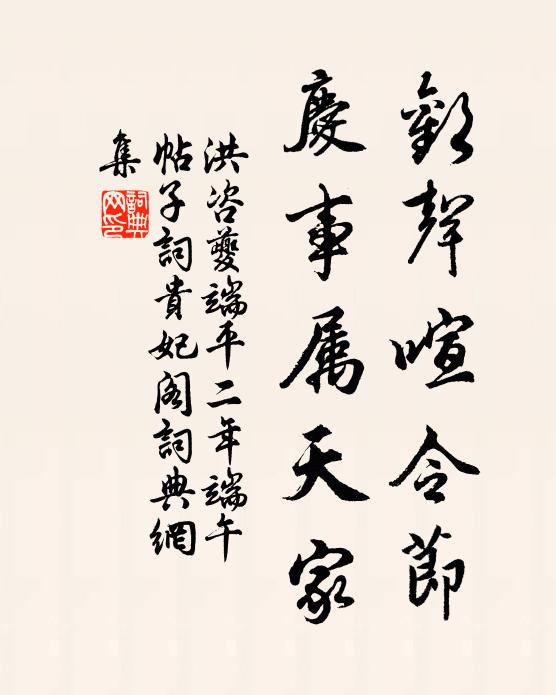 歡聲喧令節
慶事属天家
洪咨夔端平二年端午
帖子詞貴妃阁詞典網
集
詞典网印